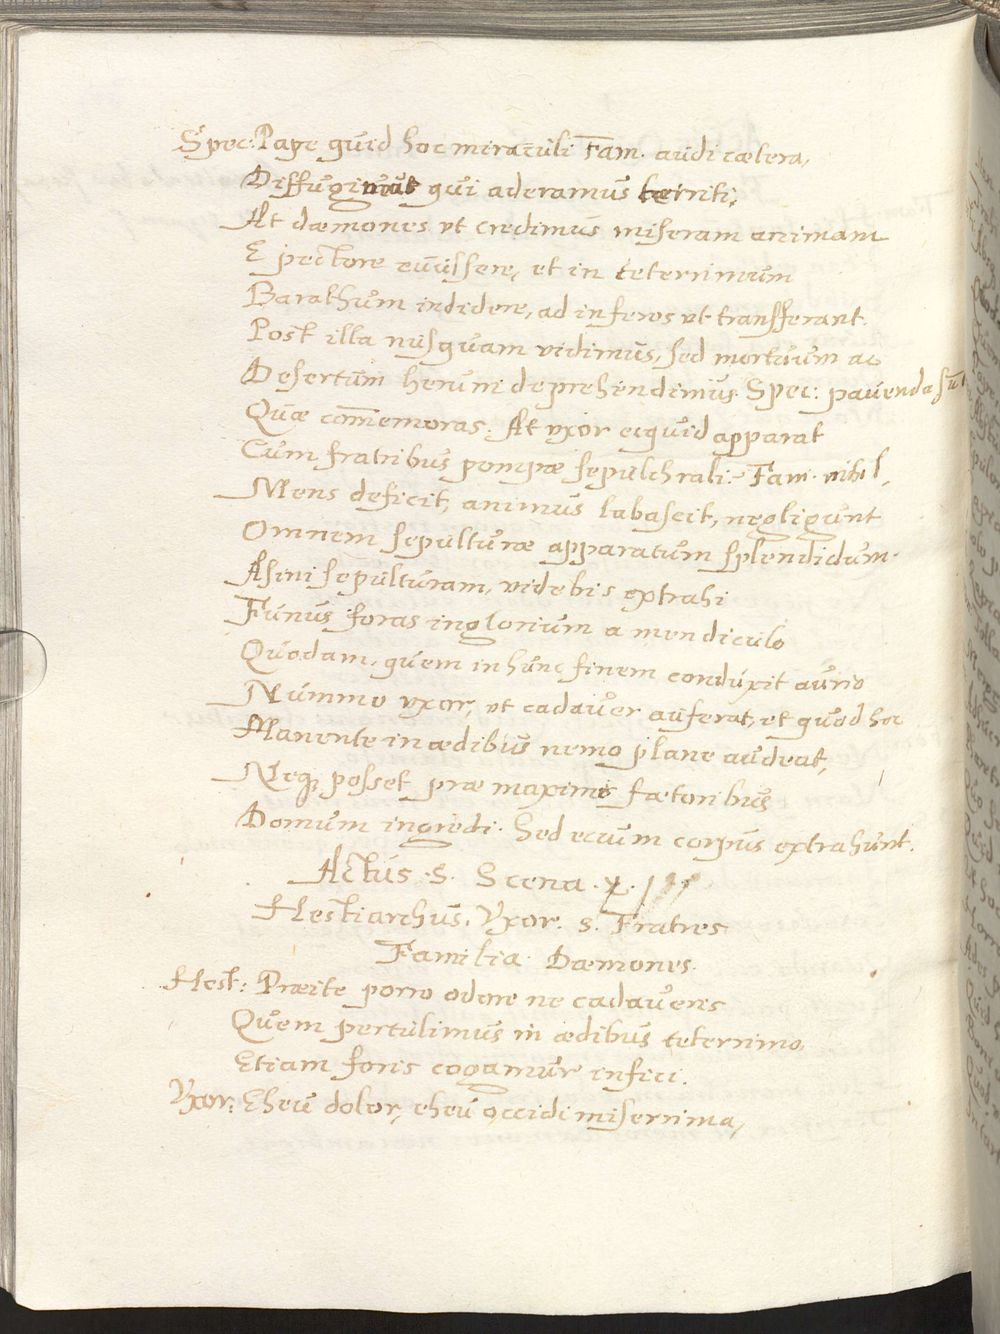 Spec: Pape quid hoc miraculi Fam. audi cætera,
Diffugimus qui aderamus territi,
At dæmones vt credimus miseram animam
E pectore euulsere, et in teterrimum
Barathrum indidere, ad inferos vt transfferant.
Post illa nusquam vidimus, sed mortuum ac
Desertum herum deprehendimus. Spec: pauenda sunt
Quæ com̄emoras. At vxor ecquid apparat
Cum fratribus pompæ sepulchrali. Fam. nihil,
Mens deficit, animus labascit, negligunt
Omnem sepulturæ apparatum splendidum.
Asini sepulturam, videbis extrahi
Funus foras inglorium a mendiculo
Quodam, quem in hunc finem conduxit auro
Nummo vxor, vt cadauer auferat, et quod hoc
Manente in ædibus nemo plane audeat,
Neq, posset præ maximis fætoribus
Domum ingredi. Sed eccum corpus extrahunt.
Actus .5. Scena .X.
Hestiarchus. Vxor. 5. Fratres
Familia. Dæmones.
Hest: Præite porro odore ne cadaueris
Quem pertulimus in ædibus teterrimo
Etiam foris cogamur infici.
Vxor: Eheu dolor, eheu occidi miserrima,